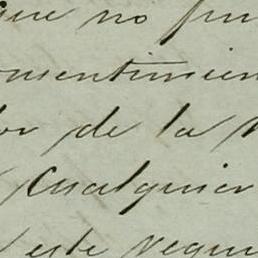 que no pu
onsentimien
or de la
Cualquier
este requi